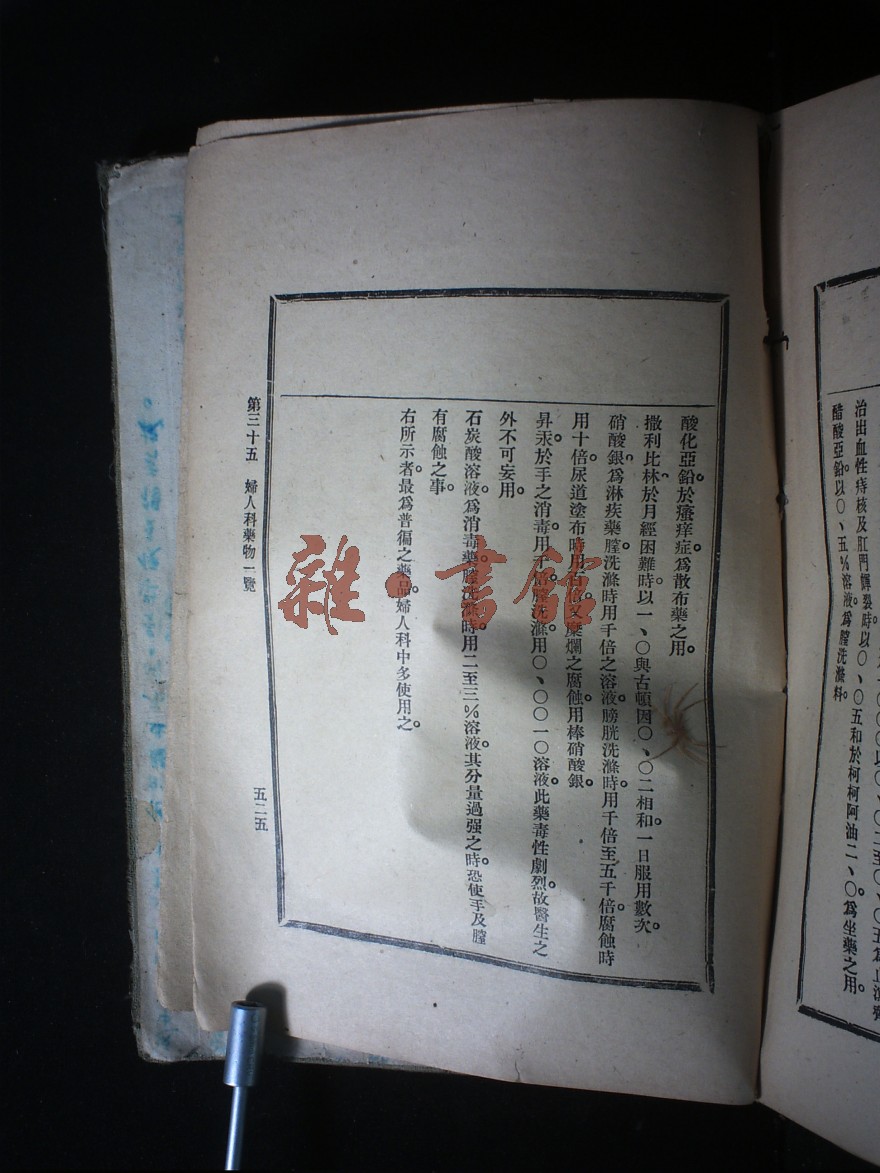 治出血性痔核及肛門皸裂時以〇、〇五和於柯柯阿油二、〇。爲坐藥之用。
醋酸亞鉛。以〇、五%溶液爲膣洗滌料。
酸化亞鉛。於瘙痒症。爲散布藥之用。
撒利比林。於月經困難時。以一、〇與古頓因〇、〇二相和。一日服用數次。
硝酸銀。爲淋疾藥。膣洗滌時用千倍之溶液。膀胱洗滌時。用千倍至五千倍。腐蝕時
用十倍。尿道塗布時。用百倍。又糜爛之腐蝕。用棒硝酸銀。
昇汞。於手之消毒。用千倍。膣洗滌。用〇、〇〇一〇溶液。此藥毒性劇烈。故醫生之
外。不可妄用。
石炭酸溶液。爲消毒藥。膣洗滌時。用二至三%溶液。其分量過强之時。恐使手及膣
有腐蝕之事。
右所示者。最爲普徧之藥品。婦人科中多使用之。
第三十五　婦人科藥物一覽
五二五
雜·書館